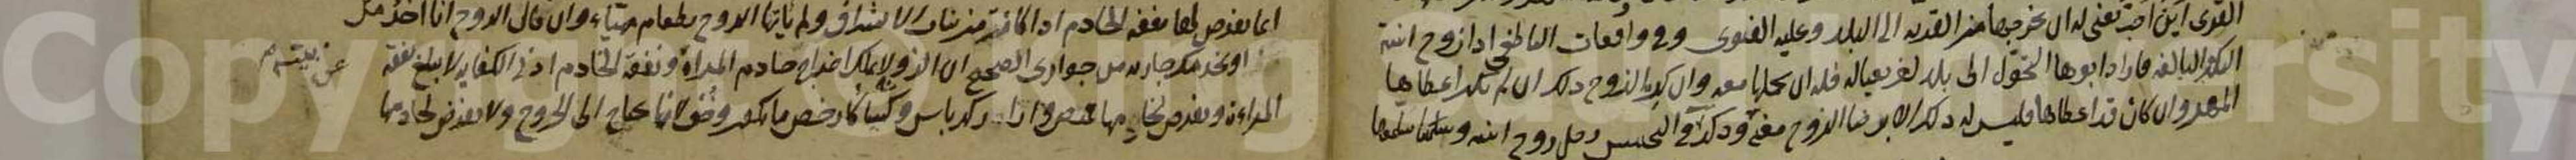 القرى اين احبت يعنى له ان يخرجها من القرية الى البلد وعليه الفتوى وفى واقعات الناطفى اذا زوج ابنته
البكر البالغة فاراد ابوها التحول الى بلد اخر بعياله فله ان يحملها معه وان كره الزوج ذلك ان لم يكن اعطاها
المهر وان كان قد اعطاها فليس له ذلك الا برضا الزوج وذكر فى التجنيس رجل زوج ابنته وسلمها
انما يفرض لها نفقة الخادم اذا كانت من بنات الاشراف ولم ياتها الزوج بطعام مهيأ وان قال الزوج انا اخدمك
او يخدمك جارية من جوارى الصحيح ان الزوج لا يملك اخراج خادم المراة ونفقة الخادم ادنى الكفاية لا يبلغ نفقة
المراة ويفرض لخادمها قميص وازار كرباس وكساء كارخص ما يكون وخف لانها تحتاج الى الخروج ولا يفرض لخادمها
عن بيته
Copyright
University